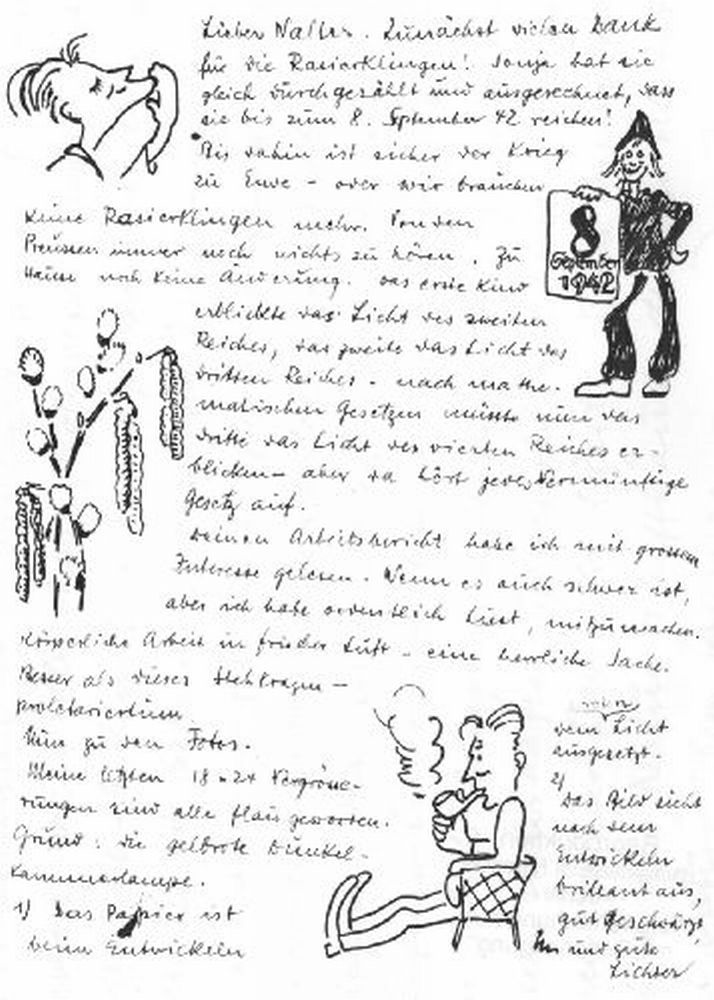 Lieber Walter. Zunächst vielen Dank
für die Rasierklingen! Sonja hat sie
gleich durchgezählt und ausgerechnet, dass
sie bis zum 8. September 42 reichen!
Bis dahin ist sicher der Krieg
zu Ende - oder wir brauchen
keine Rasierklingen mehr. Von den
Preussen immer noch nichts zu hören. Zu
Hause noch keine Änderung. Das erste Kind
erblickte das Licht des zweiten
Reiches, das zweite das Licht des
dritten Reiches - nach mathe-
matischen Gesetzen müsste nun das
dritte das Licht des vierten Reiches er-
blicken - aber da hört jedes vernünftige
Gesetz auf.
Deinen Arbeitsbericht habe ich mit grossem
Interesse gelesen. Wenn es auch schwer ist,
aber ich habe ordentlich Lust, mitzumachen.
Körperliche Arbeit in frischer Luft - eine herrliche Sache.
Besser als dieses Stehkragen-
proletariertum.
Nun zu den Fotos.
Meine letzten 18 x 24 Vergrösse-
rungen sind alle flau geworden.
Grund: die gelbrote Dunkel-
kammerlampe.
1) Das Papier ist
beim Entwickeln
dem Licht
ausgesetzt.
2)
Das Bild sieht
nach dem
Entwickeln
brilliant aus,
gut geschwärzt,
und gute
Lichter
8
September
1942